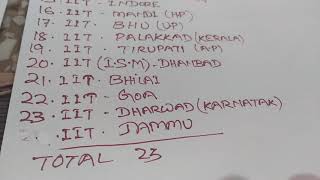 IIT - INDORE
16. IIT - MANDI (HP)
17. IIT - BHU (UP)
18. IIT - PALAKKAD (KERALA)
19. IIT - TIRUPATI (A.P)
20. IIT (I.S.M). DHANBAD
21. IIT - BHILAI
22. IIT - GOA
23. IIT - DHARWAD (KARNATAK)
IIT - JAMMU
TOTAL 23